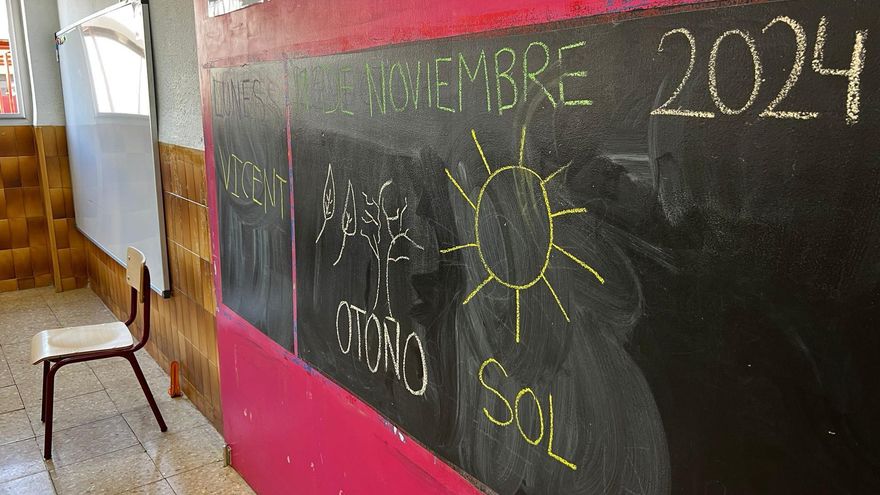 LUNES DE NOVIEMBRE 2024
VICENT
OTOÑO
SOL